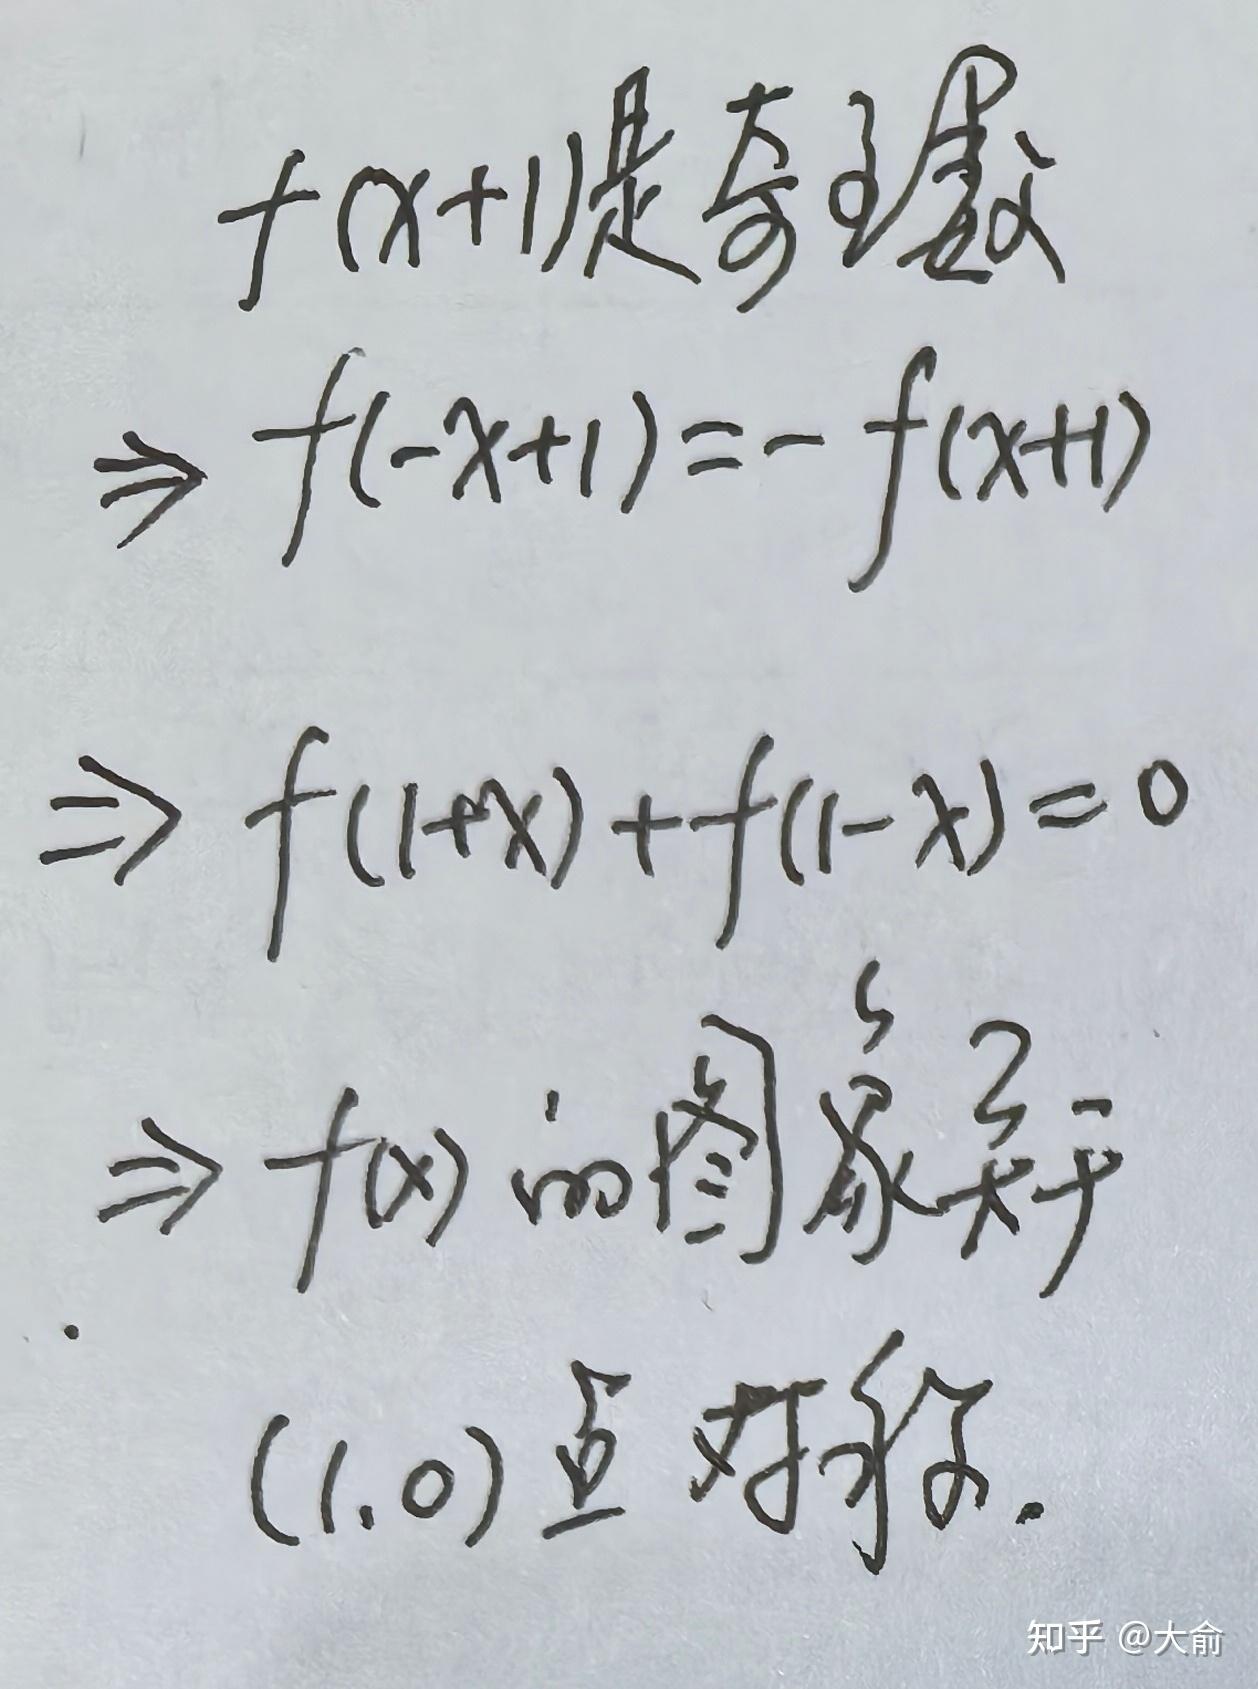 f(x+1)是奇函数
⇒ f(-x+1)=-f(x+1)
⇒ f(1+x)+f(1-x)=0
⇒ f(x)的图象关于
(1.0)点对称.
知乎 @大俞